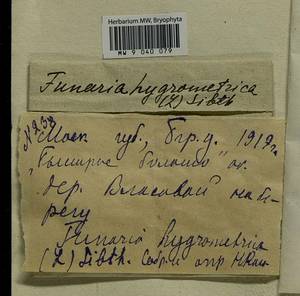 Herbarium.MW, Bryophyta
MW 9 040 079
Funaria hygrometrica
(L) Sibth
Моск. губ., бгр. у. 1919 г.
болото" ок.
дер. Власовой на бе-
регу
Funaria hygrometrica
(L) Sibth.